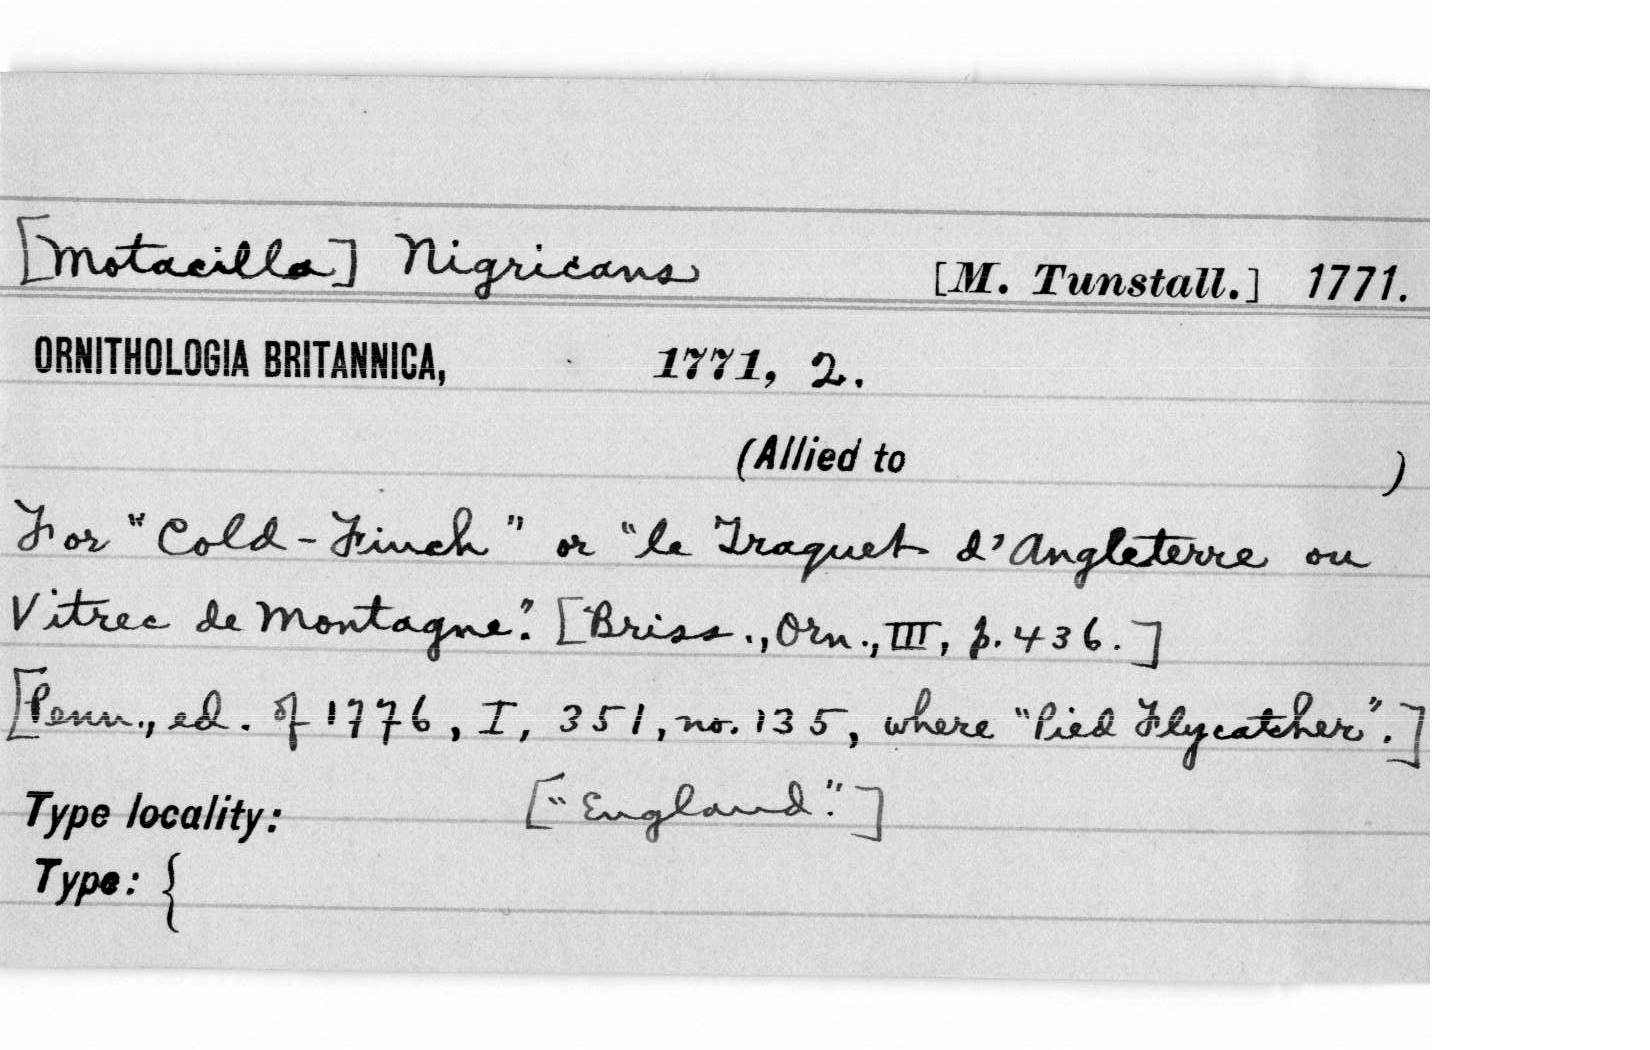 [Motacilla] Nigricans [M. Tunstall.] 1771.
ORNITHOLOGIA BRITANNICA, 1771, 2.
(Allied to )
For "Cold-Finch" or "le Traquet d'Angleterre ou
Vitrec de Montagne". [Briss., Orn., III, p. 436.]
[Penn., ed. of 1776, I, 351, no. 135, where "Pied Flycatcher".]
Type locality: ["England".]
Type: {